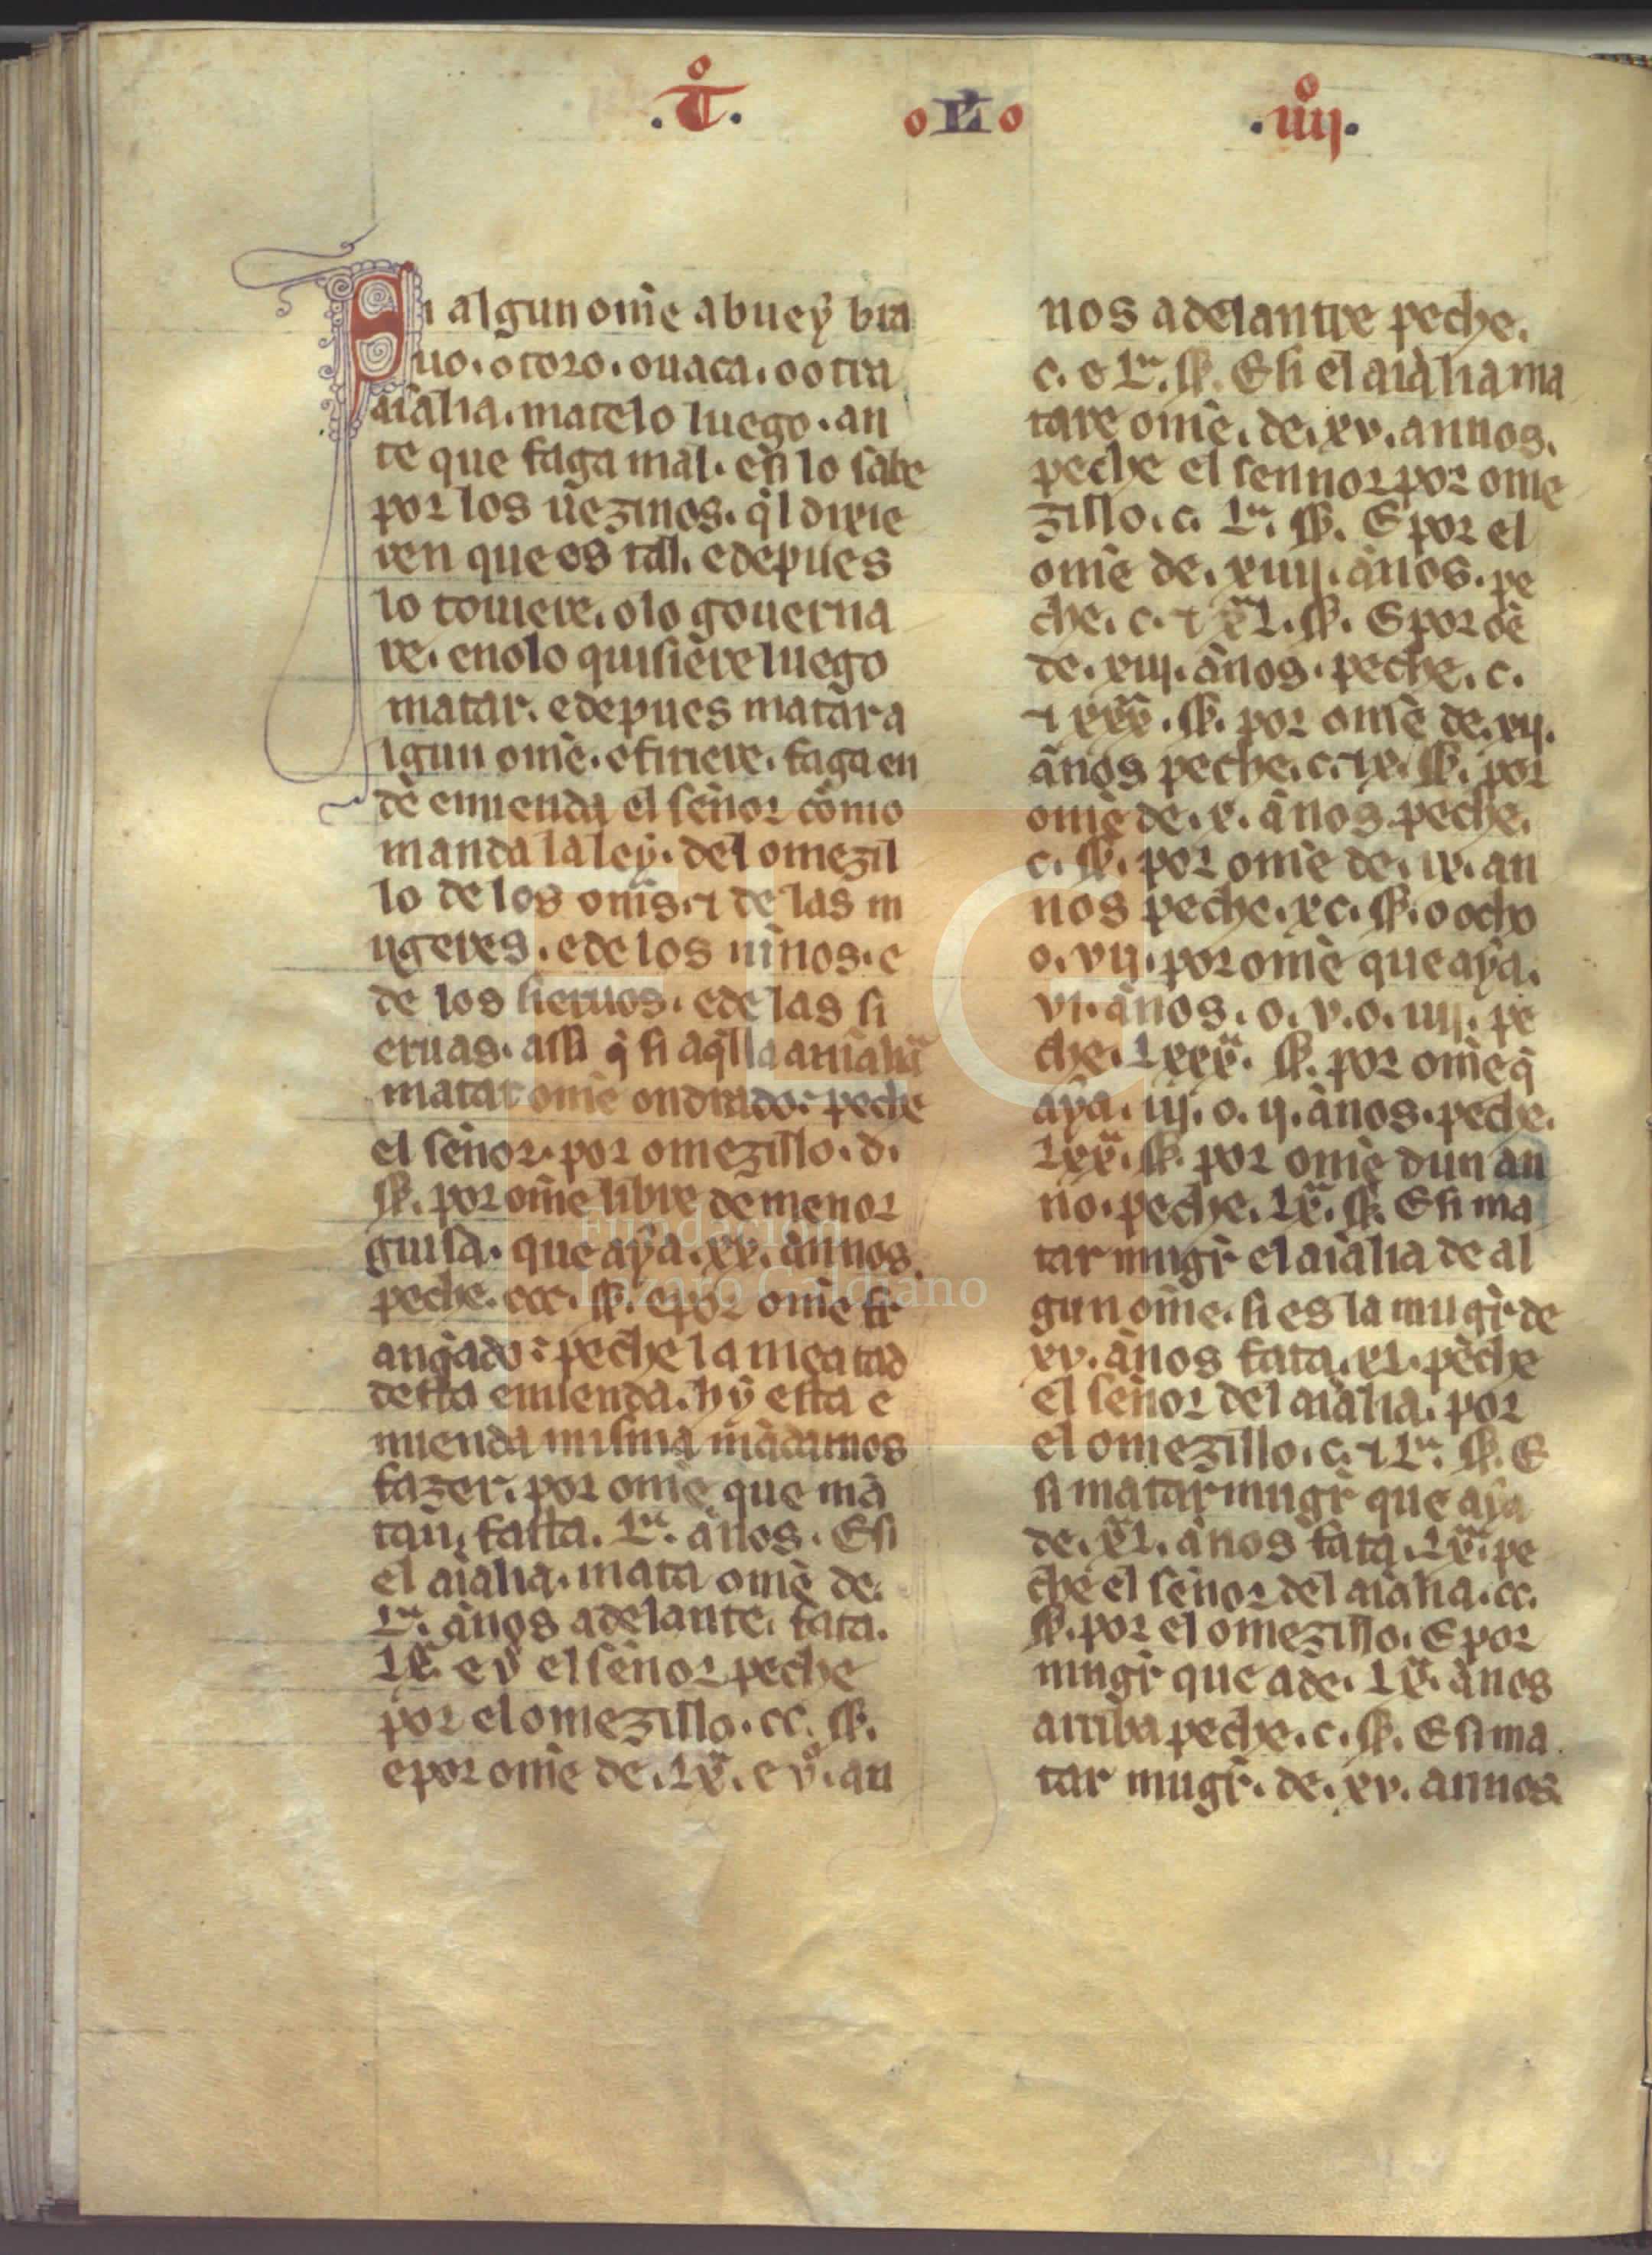 .T̊. o L̊ o .iiij̊.
Si algun om̄e a buey bra
uo. o toro. o uaca. o otra
aīalia. matelo luego. an
te que faga mal. e si lo sabe
por los uezinos. q̄l dixie
ren que es tal. e depues
lo touiere. o lo gouerna
re. e no lo quisiere luego
matar. e depues matar a
lgun om̄e. o firiere. faga en
de emienda el sen̄or como
manda la ley. del omezil
lo de los om̄s. ⁊ de las m
ugeres. e de los nin̄os. e
de los sieruos. e de las si
eruas. assi q̄ si aq̄lla animalia
matar om̄e ondrado: peche
el sen̄or. por omezillo. d.
sƀ. por om̄e libre de menor
guisa. que aya. xx. annos.
peche. ccc. sƀ. e por om̄e fr
anq̄ado: peche la meatad
desta emienda. hy esta e
mienda misma mādamos
fazer. por om̄e que mā
tan. fasta. Lᵃ. an̄os. E si
el aīalia. mata om̄e de.
Lᵃ. an̄os adelante. fata.
Lxᵃ. e v̊ el sen̄or peche
por el omezillo. cc. sƀ.
e por om̄e de. Lxᵃ. e v̊. an
nos adelantre peche.
c. e Lᵃ. sƀ. E si el aīalia ma
tare om̄e. de. xv. annos.
peche el sennor por ome
zillo. c. Lᵃ. sƀ. E por el
om̄e de. xiiij. an̄os. pe
che. c. ⁊ xᵃL. sƀ. E por ōe
de. xiij. an̄os. peche. c.
⁊ xxxᵃ. sƀ. por om̄e de. xij.
an̄os peche. c. ⁊ x. sƀ. por
om̄e de. x. an̄os peche.
c. sƀ. por om̄e de. ix. an
nos peche. xc. sƀ. o ocho
o. vij. por om̄e que aya.
vi. an̄os. o. v. o. iiij. pe
che. Lxxxᵃ. sƀ. por om̄e q̄
aya. iij. o. ij. an̄os. peche.
Lxxᵃ. sƀ. por om̄e dun an
no. peche. Lxᵃ. sƀ. E si ma
tar mugr̄ el aīalia de al
gun om̄e. si es la mugr̄ de
xv. an̄os fata. xL. peche
el sen̄or del aīalia. por
el omezillo. c. ⁊ Lᵃ. sƀ. E
si matar mugr̄ que aya
de. xᵃL. an̄os fata. Lxᵃ. pe
che el sen̄or del aīalia. cc.
sƀ. por el omezillo. E por
mugr̄ que a de. Lxᵃ. an̄os
arriba peche. c. sƀ. E si ma
tar mugr̄. de. xv. annos.
FLG
Fundación
Lázaro Galdiano